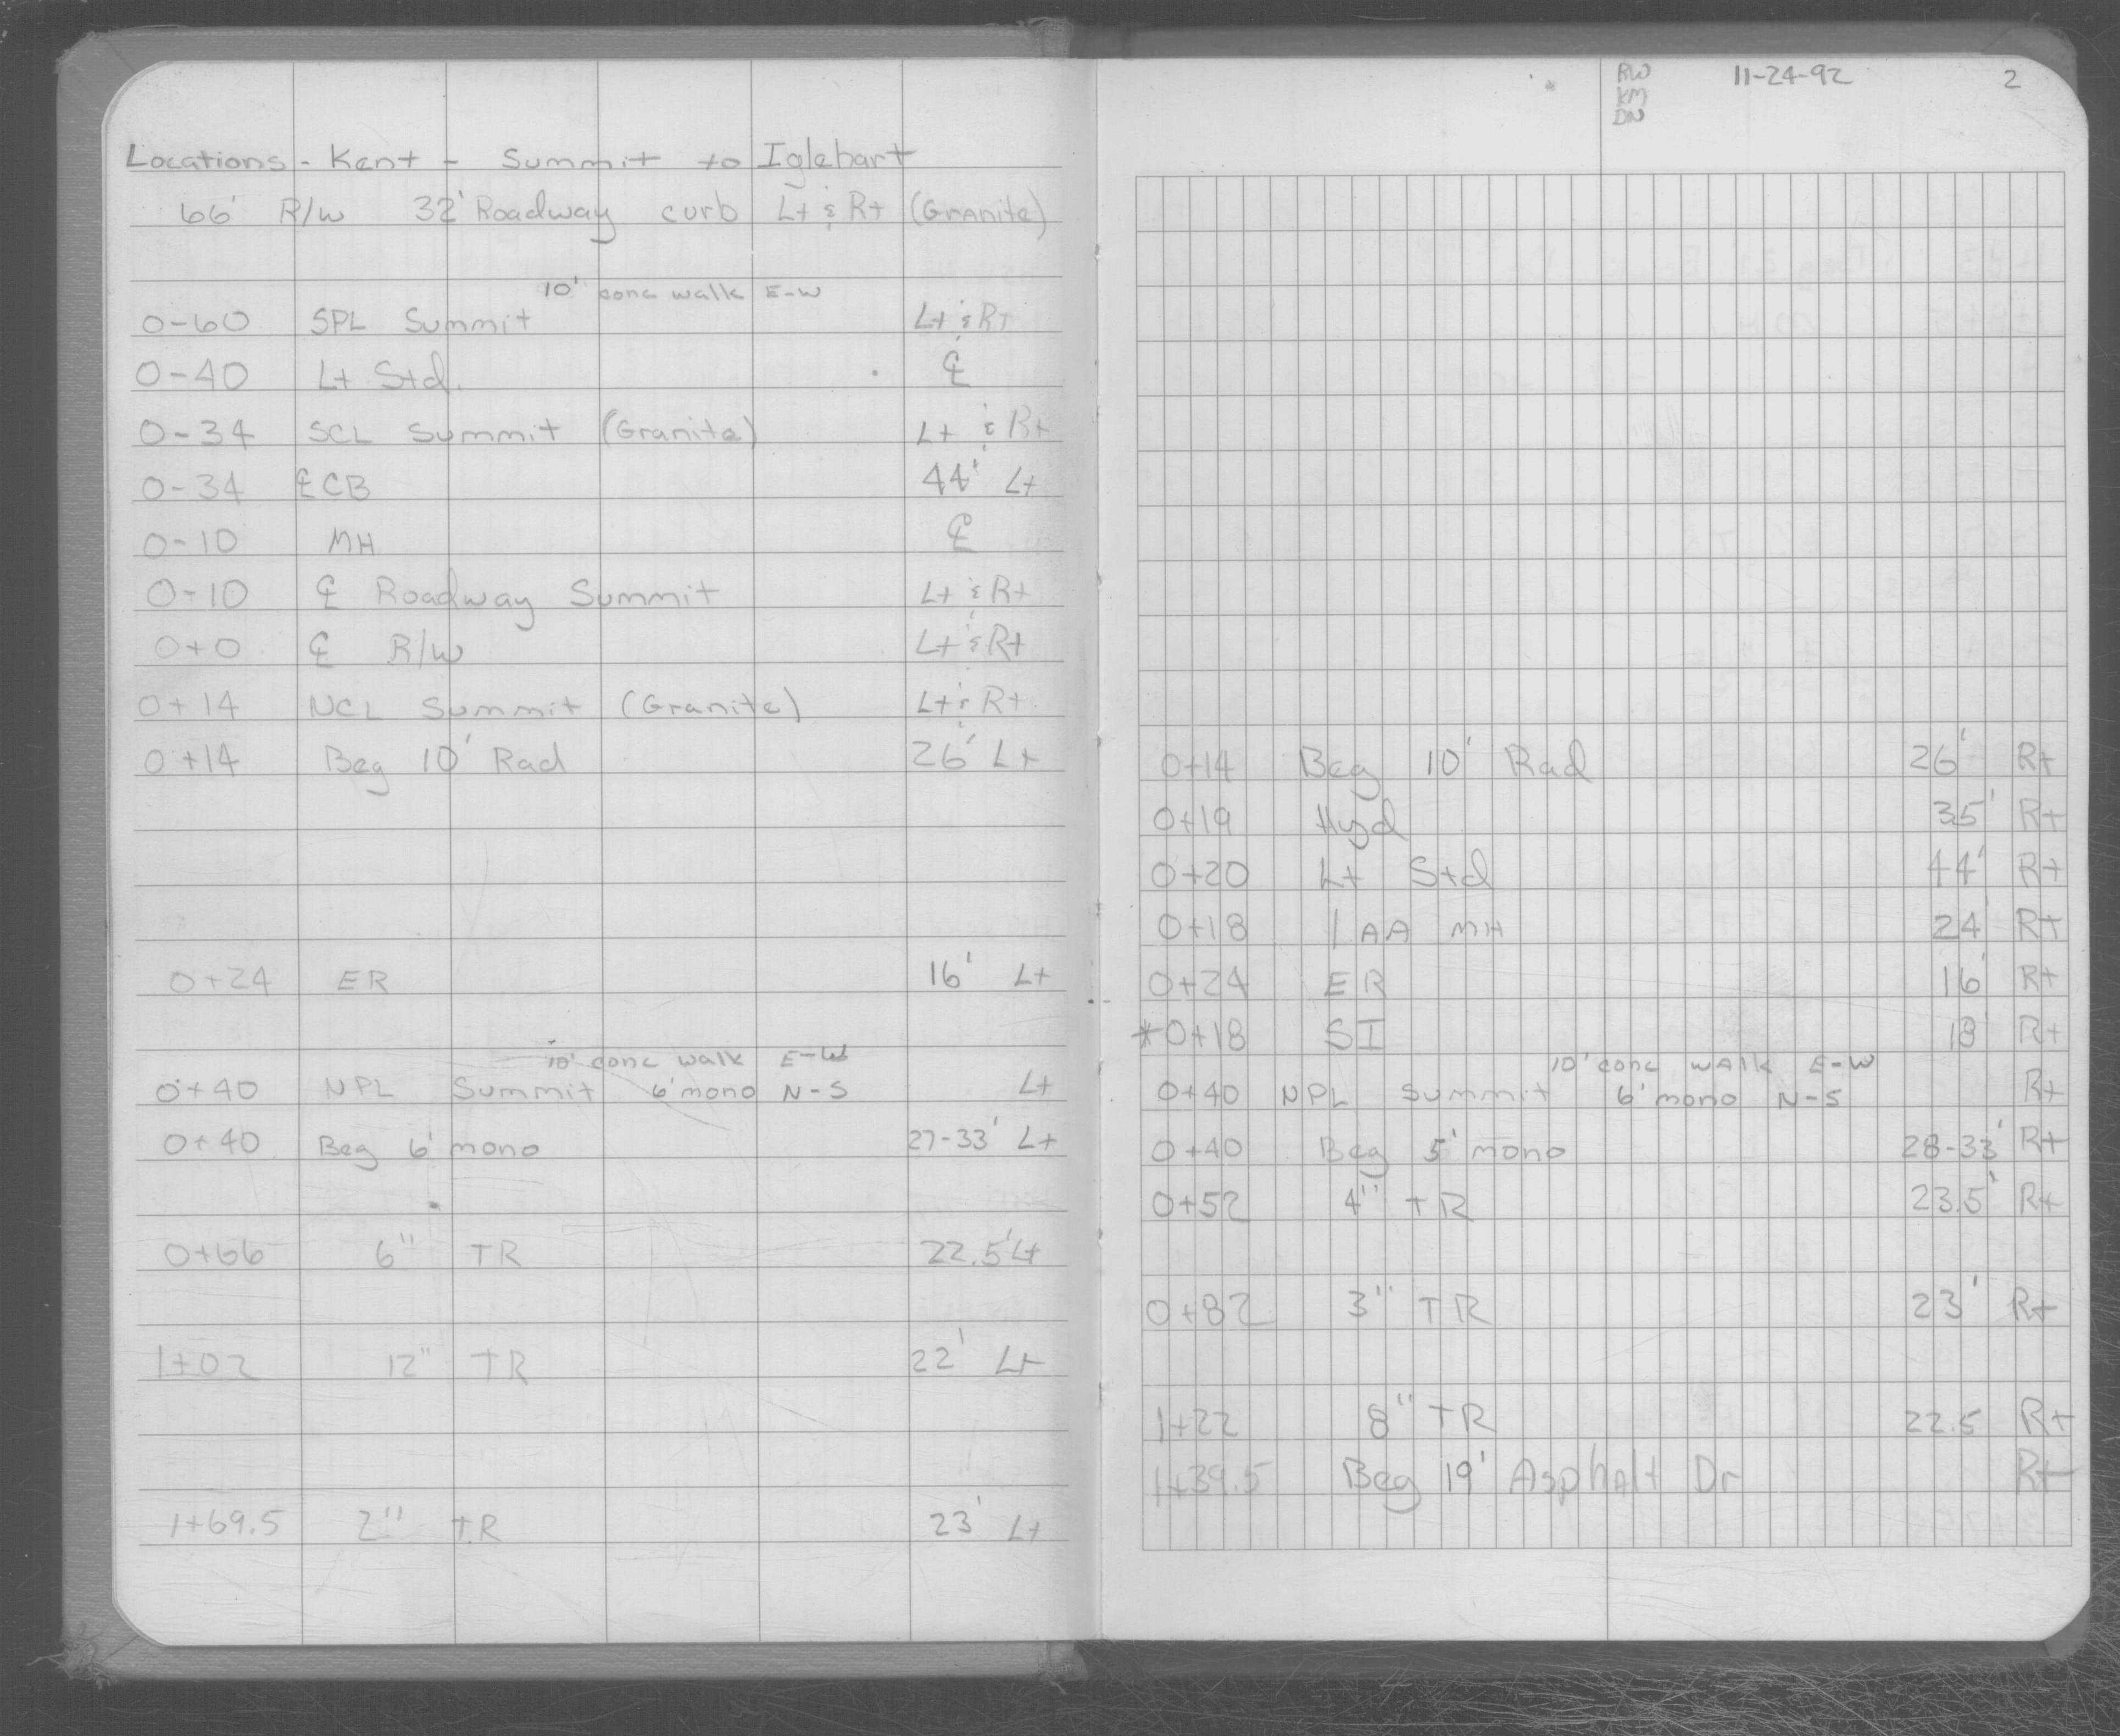 Locations - Kent - Summit to Iglehart
66' R/W 32' Roadway curb Lt & Rt (Granite)
10' conc walk E-W
0-60 SPL Summit Lt & Rt
0-40 Lt Std. ℄
0-34 SCL Summit (Granite) Lt & Rt
0-34 ℄ CB 44' Lt
0-10 MH ℄
0-10 ℄ Roadway Summit Lt & Rt
0+0 ℄ R/W Lt & Rt
0+14 NCL Summit (Granite) Lt & Rt
0+14 Beg 10' Rad 26' Lt
0+24 ER 16' Lt
10' conc walk E-W
0+40 NPL Summit 6' mono N-S Lt
0+40 Beg 6' mono 27-33' Lt
0+66 6" TR 22.5' Lt
1+02 12" TR 22' Lt
1+69.5 2" TR 23' Lt
RW 11-24-92 2
KM
DN
0+14 Beg 10' Rad 26' Rt
0+19 Hyd 35' Rt
0+20 Lt Std 44' Rt
0+18 1 AA MH 24' Rt
0+24 ER 16' Rt
*0+18 SI 18' Rt
10' conc walk E-W
0+40 NPL Summit 6' mono N-S Rt
0+40 Beg 5' mono 28-33' Rt
0+52 4" TR 23.5' Rt
0+82 3" TR 23' Rt
1+22 8" TR 22.5 Rt
1+39.5 Beg 19' Asphalt Dr Rt